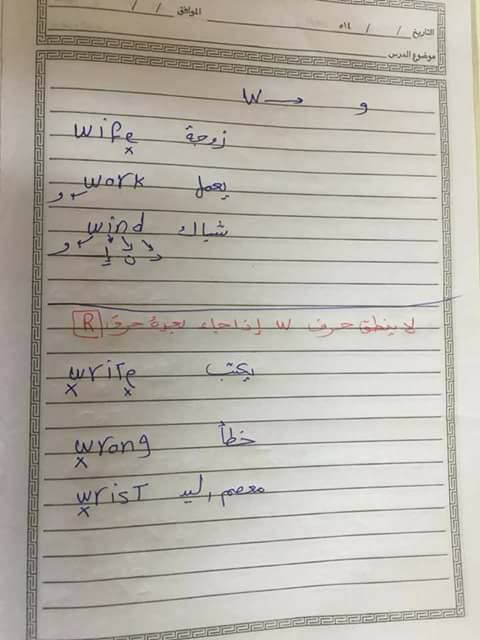 التاريخ / / ١٤هـ الموافق / /
موضوع الدرس
و ← W
wife زوجة
x
work يعمل
و
wind شباك
و إ ن د
لا ينطق حرف w إذا جاء بعده حرف R
write يكتب
x x
wrong خطأ
x
wrist معصم اليد
x